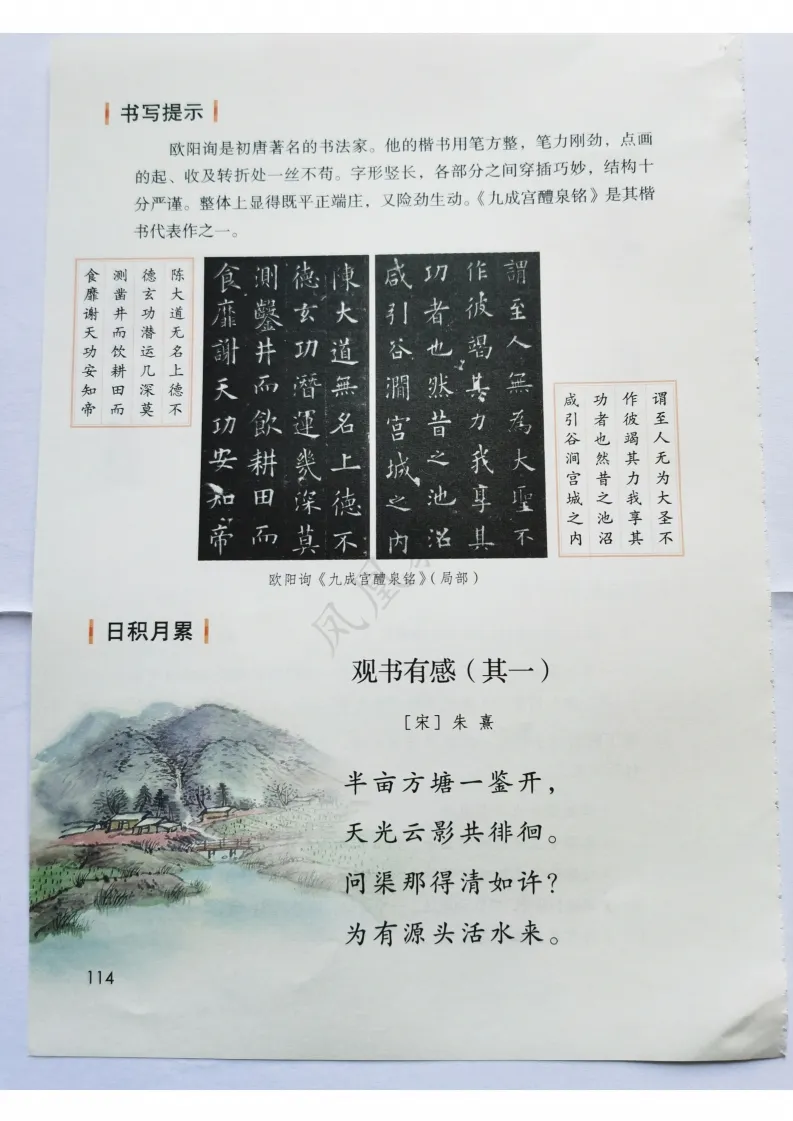 书写提示
欧阳询是初唐著名的书法家。他的楷书用笔方整，笔力刚劲，点画
的起、收及转折处一丝不苟。字形竖长，各部分之间穿插巧妙，结构十
分严谨。整体上显得既平正端庄，又险劲生动。《九成宫醴泉铭》是其楷
书代表作之一。
陈大道无名上德不
德玄功潜运几深莫
测凿井而饮耕田而
食靡谢天功安知帝
陳大道無名上德不
德玄功潛運幾深莫
測鑿井而飲耕田而
食靡謝天功安知帝
謂至人無為大聖不
作彼竭其力我享其
功者也然昔之池沼
咸引谷澗宫城之内
谓至人无为大圣不
作彼竭其力我享其
功者也然昔之池沼
咸引谷涧宫城之内
欧阳询《九成宫醴泉铭》（局部）
凤凰
日积月累
观书有感（其一）
［宋］朱 熹
半亩方塘一鉴开，
天光云影共徘徊。
问渠那得清如许？
为有源头活水来。
114